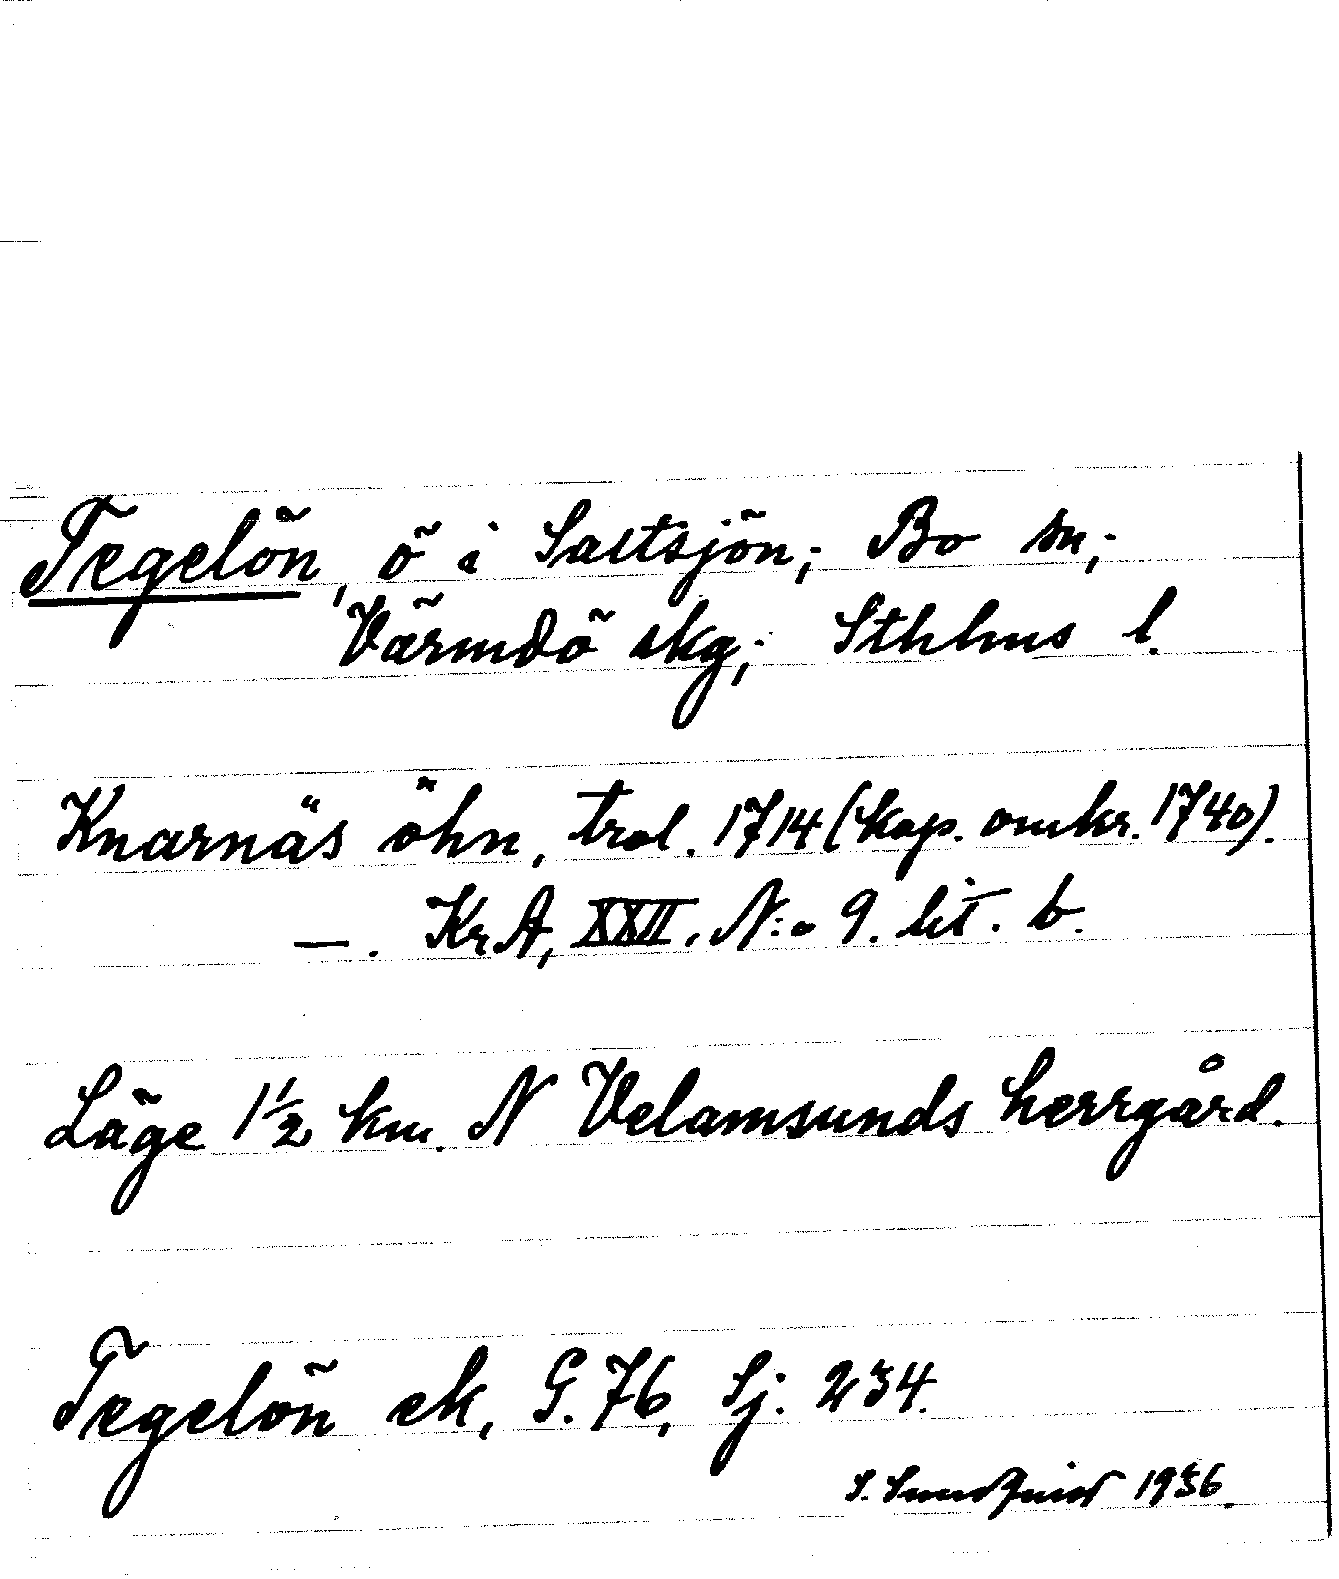 Tegelön, ö i Saltsjön; Bo sn;
Värmdö skg; Sthlms l.
Knarnäs öhn, trol. 1714 (kop. omkr. 1740).
—. KrA, XXII. N:o 9. lit. b.
Läge 1½ km. N Velamsunds herrgård.
Tegelön ek, G. 76, Sj: 234.
S. Sundquist 1936.